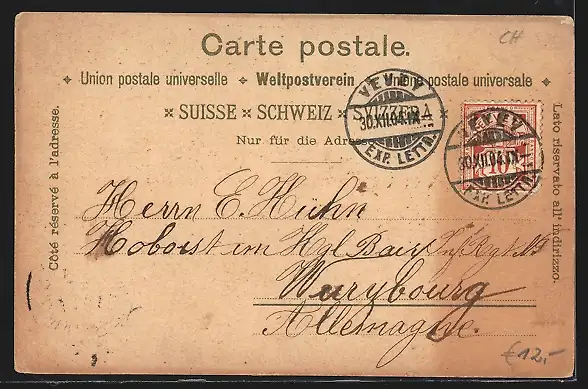 Carte postale.
CH
Union postale universelle ✦ Weltpostverein ✦ Unione postale universale
× SUISSE × SCHWEIZ × SVIZZERA ×
Nur für die Adresse
Côté réservé à l'adresse.
Lato riservato all' indirizzo.
VEVEY
30.XII.04.IX
EXP. LETTR.
VEVEY
30.XII.04.IX
EXP. LETTR.
10
Herrn E. Huhn
Hoboist im Kgl Bair Inf Rgt
Wurybourg
Allemagne.
€12,-